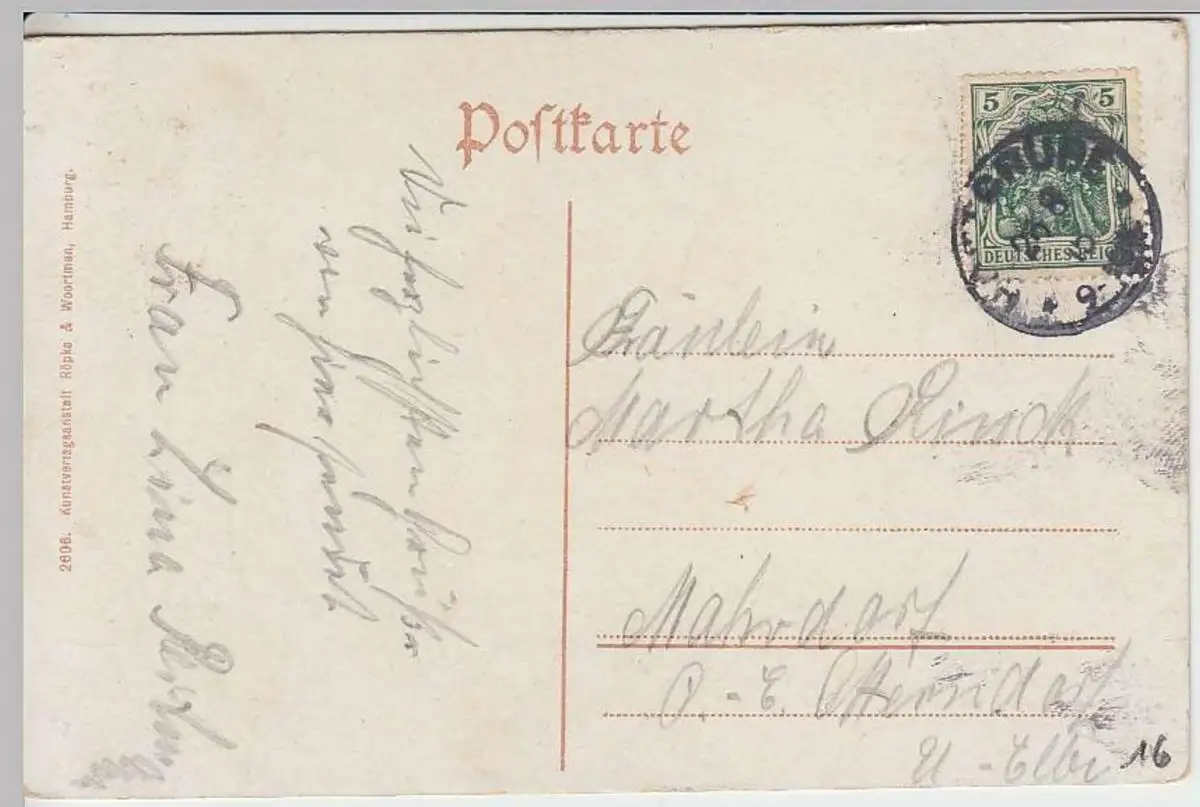 Postkarte
2606. Kunstverlagsanstalt Röpke & Woortman, Hamburg.
Die herzlichsten Grüße
von hier sendet
Frau Lina
5 5
DEUTSCHES REICH
Fräulein
Martha Rinck
Mahrdorf
P. - E. Otterndorf
U - Elbe
16